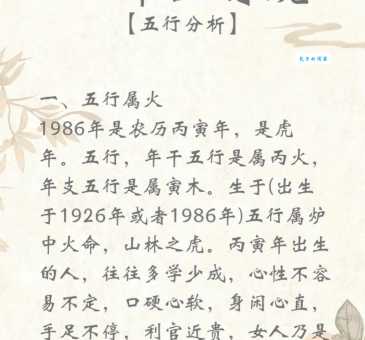 【五行分析】
一、五行属火
1986年是农历丙寅年，是虎
年。五行，年干五行是属丙火，
年支五行是属寅木。生于(出生
于1926年或者1986年)五行属炉
中火命，山林之虎。丙寅年出生
的人，往往多学少成，心性不容
易不定，口硬心软，身闲心直，
手足不停，利官近贵，女人乃是